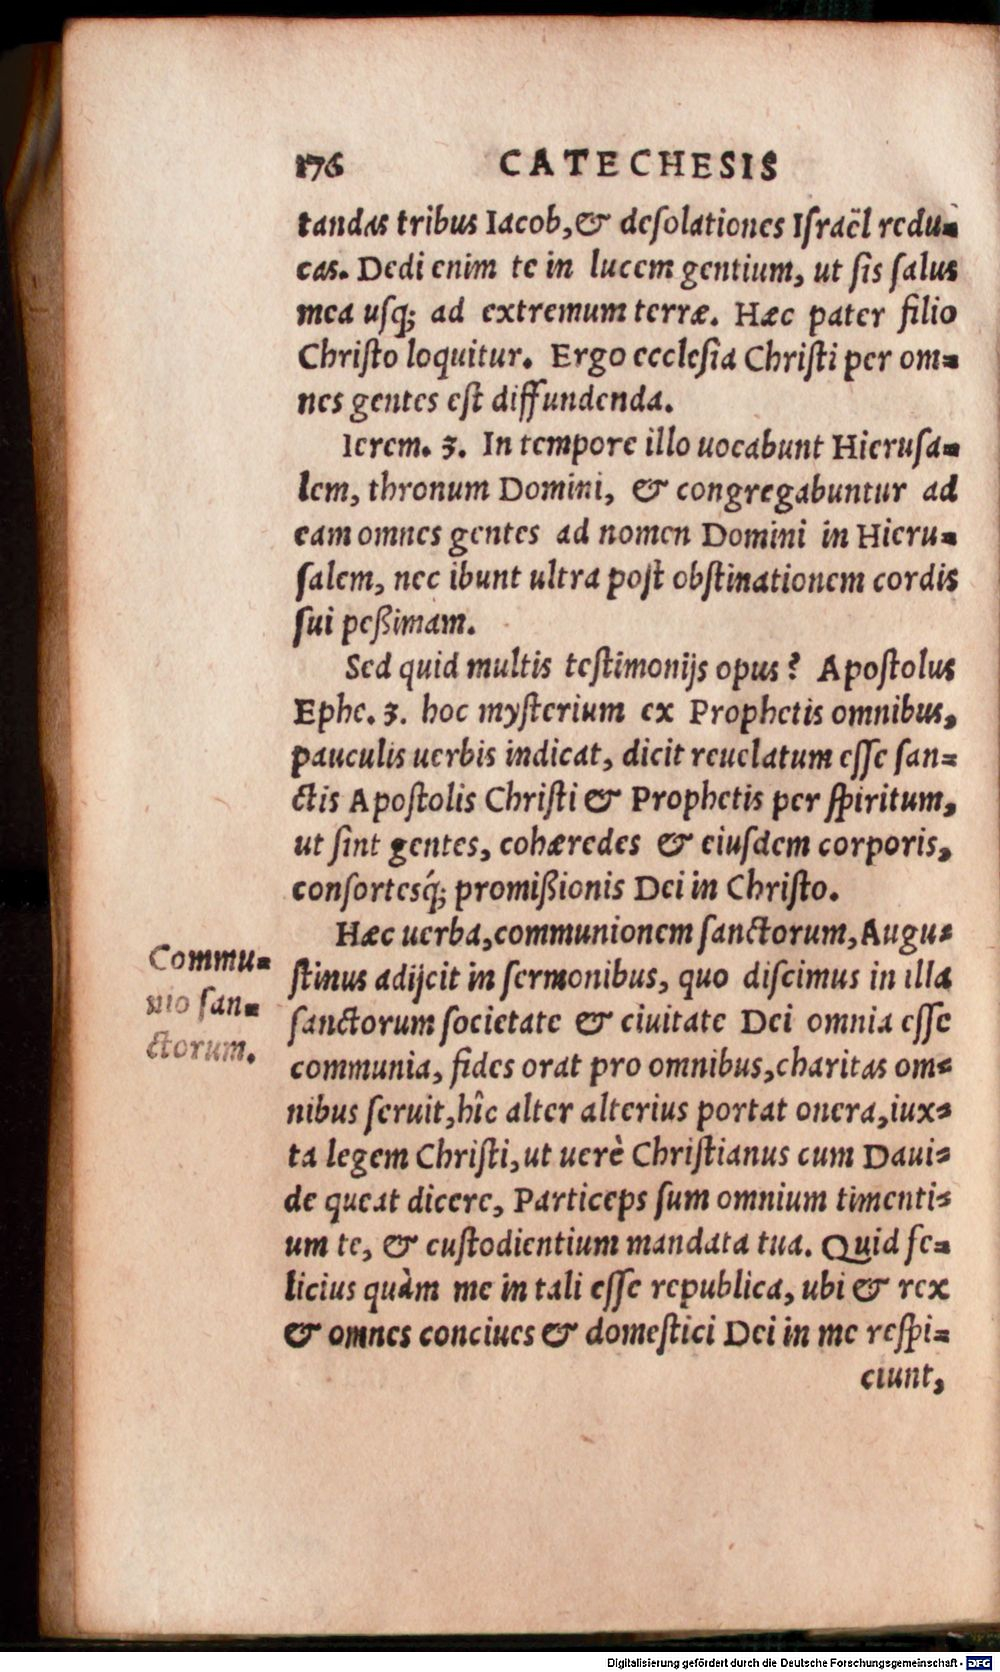 176 CATECHESIS
tandas tribus Iacob, & desolationes Israël redu-
cas. Dedi enim te in lucem gentium, ut sis salus
mea usq; ad extremum terræ. Hæc pater filio
Christo loquitur. Ergo ecclesia Christi per om-
nes gentes est diffundenda.
Ierem. 3. In tempore illo uocabunt Hierusa-
lem, thronum Domini, & congregabuntur ad
eam omnes gentes ad nomen Domini in Hieru-
salem, nec ibunt ultra post obstinationem cordis
sui peßimam.
Sed quid multis testimonijs opus? Apostolus
Ephe. 3. hoc mysterium ex Prophetis omnibus,
pauculis uerbis indicat, dicit reuelatum esse san-
ctis Apostolis Christi & Prophetis per spiritum,
ut sint gentes, cohæredes & eiusdem corporis,
consortesq́; promißionis Dei in Christo.
Hæc uerba, communionem sanctorum, Augu-
stinus adijcit in sermonibus, quo discimus in illa
sanctorum societate & ciuitate Dei omnia esse
communia, fides orat pro omnibus, charitas om-
nibus seruit, hîc alter alterius portat onera, iux-
ta legem Christi, ut uerè Christianus cum Daui-
de queat dicere, Particeps sum omnium timenti-
um te, & custodientium mandata tua. Quid fe-
licius quàm me in tali esse republica, ubi & rex
& omnes conciues & domestici Dei in me respi-
ciunt,
Commu-
nio san-
ctorum.
Digitalisierung gefördert durch die Deutsche Forschungsgemeinschaft - DFG